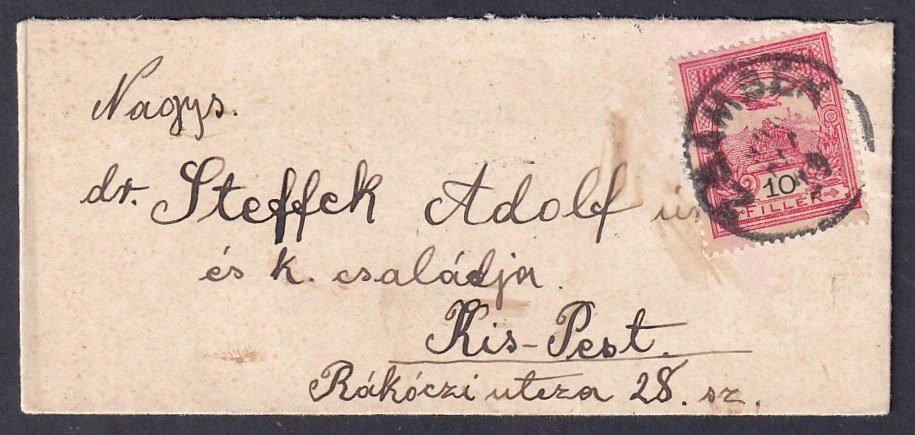 Nagys.
dr. Steffek Adolf úr
és k. családja.
Kis-Pest.
Rákóczi utcza 28. sz.
10
FILLER